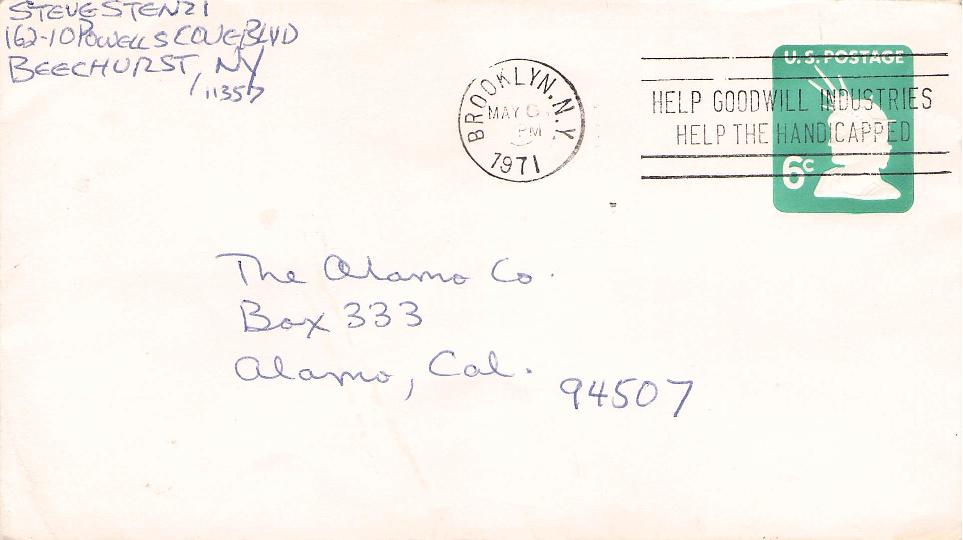 STEVE STENZI
162-10 POWELLS COVE BLVD
BEECHURST, NY
11357
BROOKLYN, N.Y.
MAY 6
PM
1971
U.S. POSTAGE
HELP GOODWILL INDUSTRIES
HELP THE HANDICAPPED
6c
The Alamo Co.
Box 333
Alamo, Cal.
94507